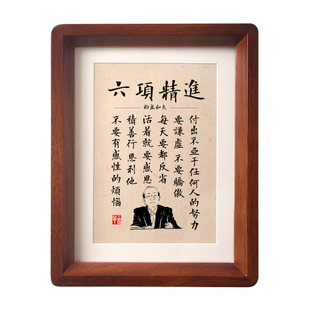 六項精進
稻盛和夫
付出不亞于任何人的努力
要謙虛 不要驕傲
每天要都反省
活着就要感恩
積善行 思利他
不要有感性的煩惱